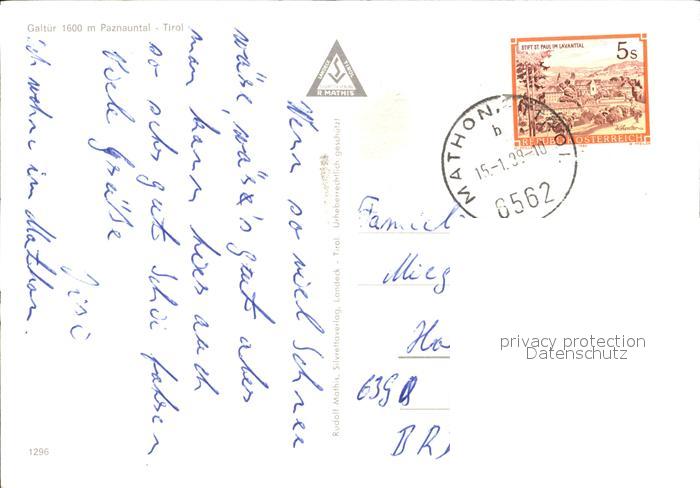 Galtür 1600 m Paznauntal - Tirol
Wenn so viel Schnee
wäre, wäre's gut aber
man kann hier auch
so sehr gut Schi fahren
Viele Grüße
Gisi
ich wohne in Mathon.
1296
LANDECK TIROL
R. MATHIS
Rudolf Mathis, Silvrettaverlag, Landeck - Tirol Urheberrechtlich geschützt!
STIFT ST. PAUL IM LAVANTTAL
5 S
REPUBLIK ÖSTERREICH
MATHON, TIROL
b
15.-1.89-10
6562
Famil
Mieg
Ha
6390
BR
privacy protection
Datenschutz